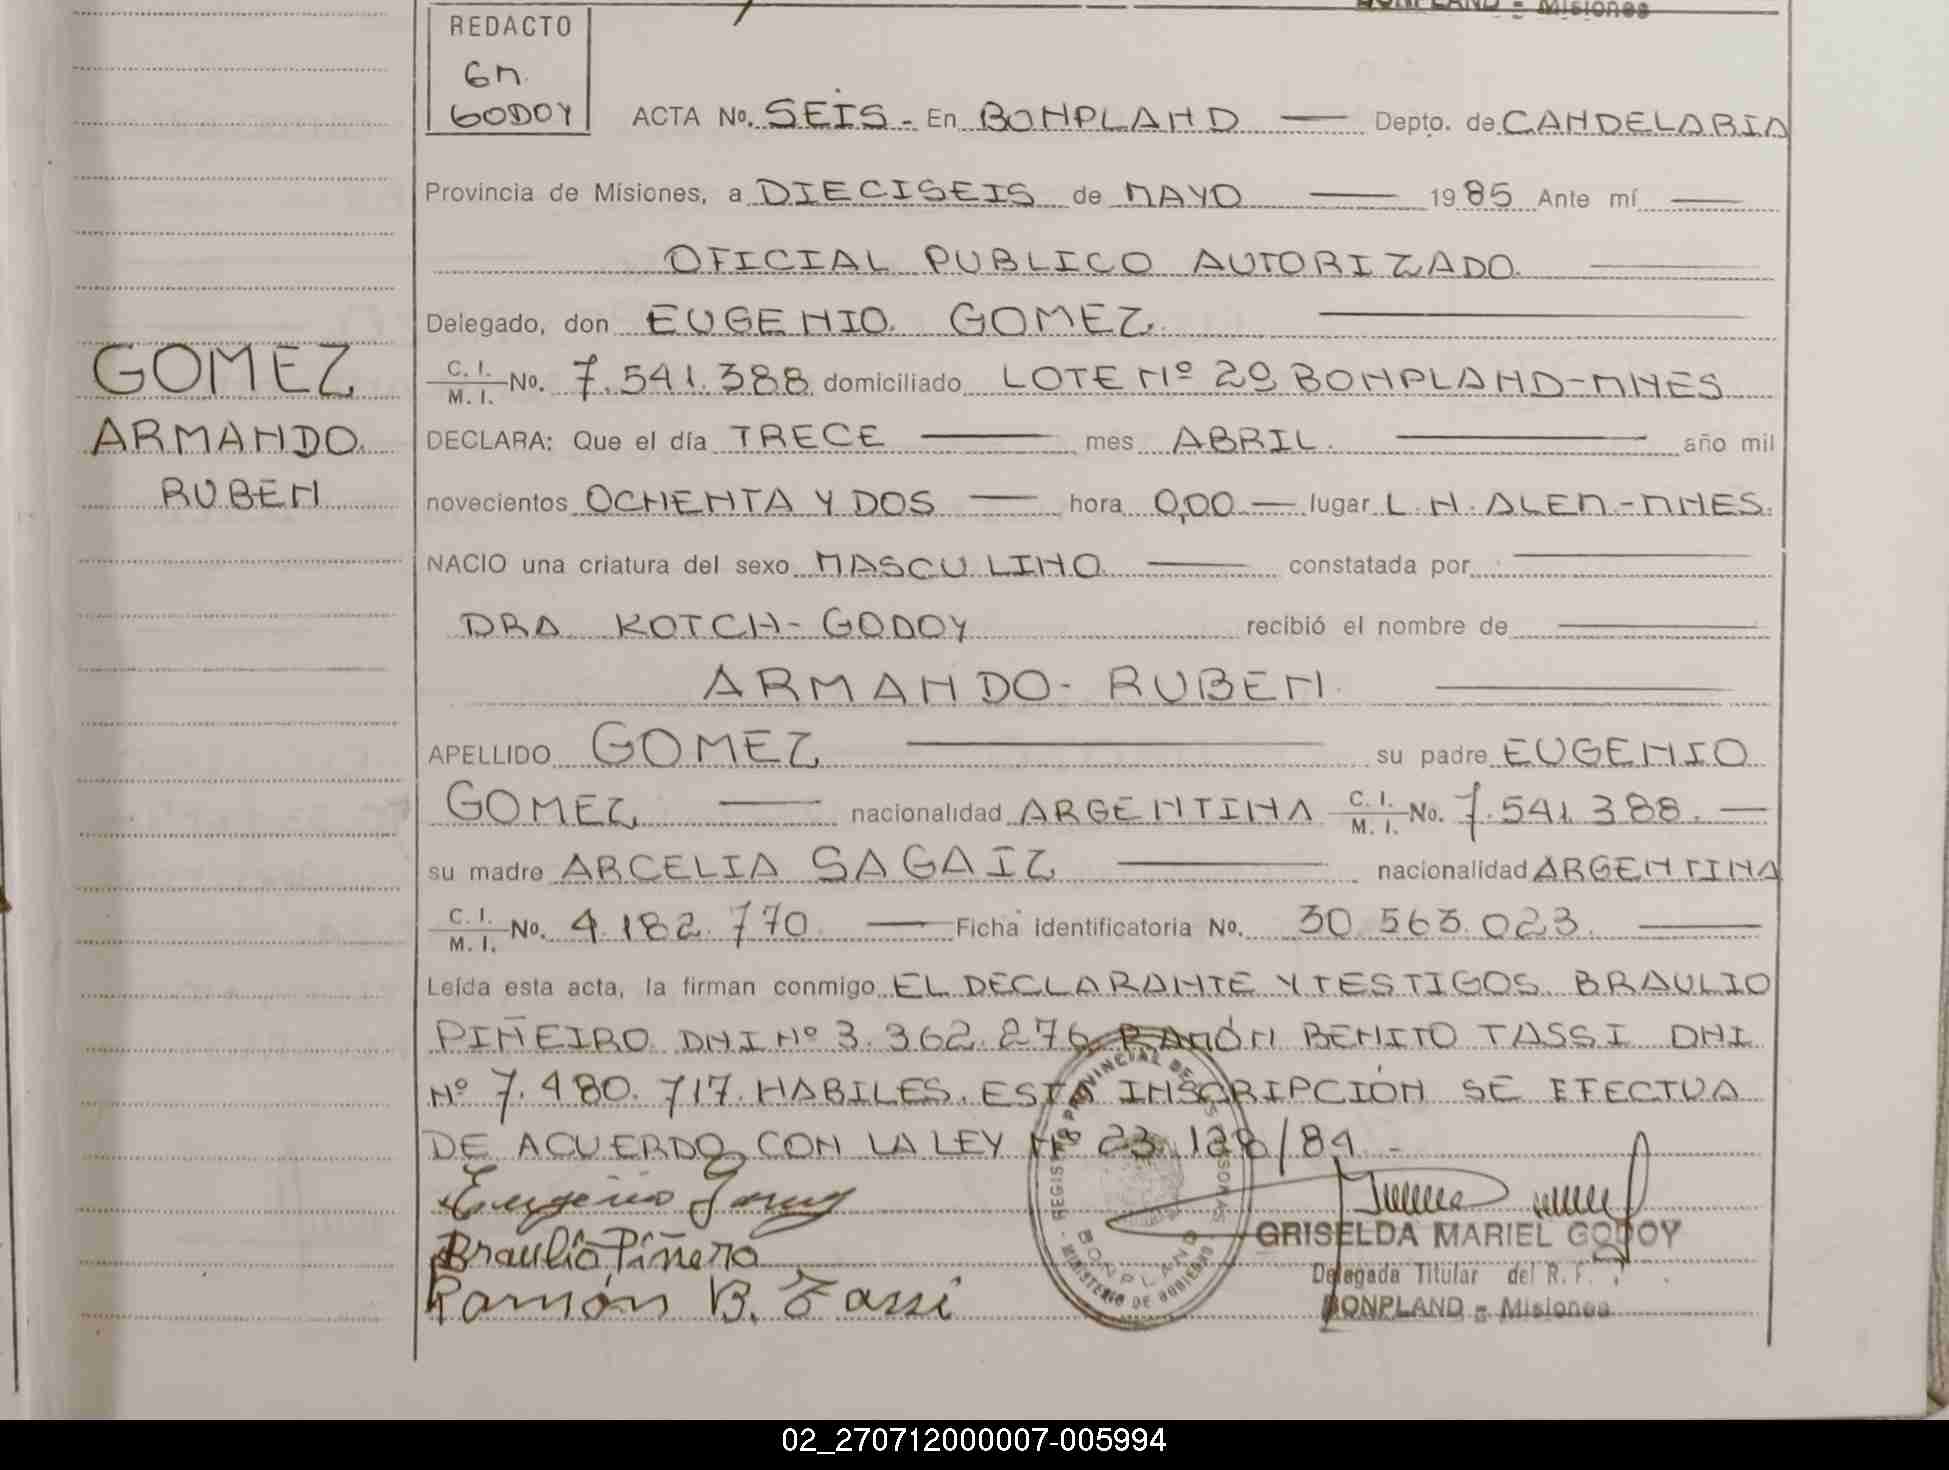 BONPLAND - Misiones
REDACTO
Gm
GODOY
ACTA No. SEIS.- En BONPLAND — Depto. de CANDELARIA
Provincia de Misiones, a DIECISEIS de MAYO — 1985 Ante mí —
OFICIAL PUBLICO AUTORIZADO. —
Delegado, don EUGENIO GOMEZ. —
C. I. / M. I. No. 7.541.388 domiciliado LOTE Nº 29 BONPLAND-MNES
DECLARA: Que el día TRECE — mes ABRIL. — año mil
novecientos OCHENTA Y DOS — hora 0,00 — lugar L.N. ALEM.-MNES.
NACIO una criatura del sexo MASCULINO — constatada por —
DRA KOTCH-GODOY recibió el nombre de —
ARMANDO-RUBEN. —
APELLIDO GOMEZ — su padre EUGENIO
GOMEZ — nacionalidad ARGENTINA C. I. / M. I. No. 7.541.388. —
su madre ARCELIA SAGAIZ — nacionalidad ARGENTINA
C. I. / M. I. No. 4.182.770 — Ficha identificatoria No. 30.563.023. —
Leída esta acta, la firman conmigo EL DECLARANTE Y TESTIGOS BRAULIO
PIÑEIRO DNI Nº 3.362.276 RAMÓN BENITO TASSI DNI
Nº 7.480.717. HABILES. ESTA INSCRIPCIÓN SE EFECTUA
DE ACUERDO CON LA LEY Nº 23.128/84.-
GOMEZ
ARMANDO
RUBEN
Eugenio Gomez
Braulio Piñero
Ramón B. Tassi
REGISTRO PROVINCIAL DE LAS PERSONAS
BONPLAND
MINISTERIO DE GOBIERNO
GRISELDA MARIEL GODOY
Delegada Titular del R. P.
BONPLAND - Misiones
02_270712000007-005994